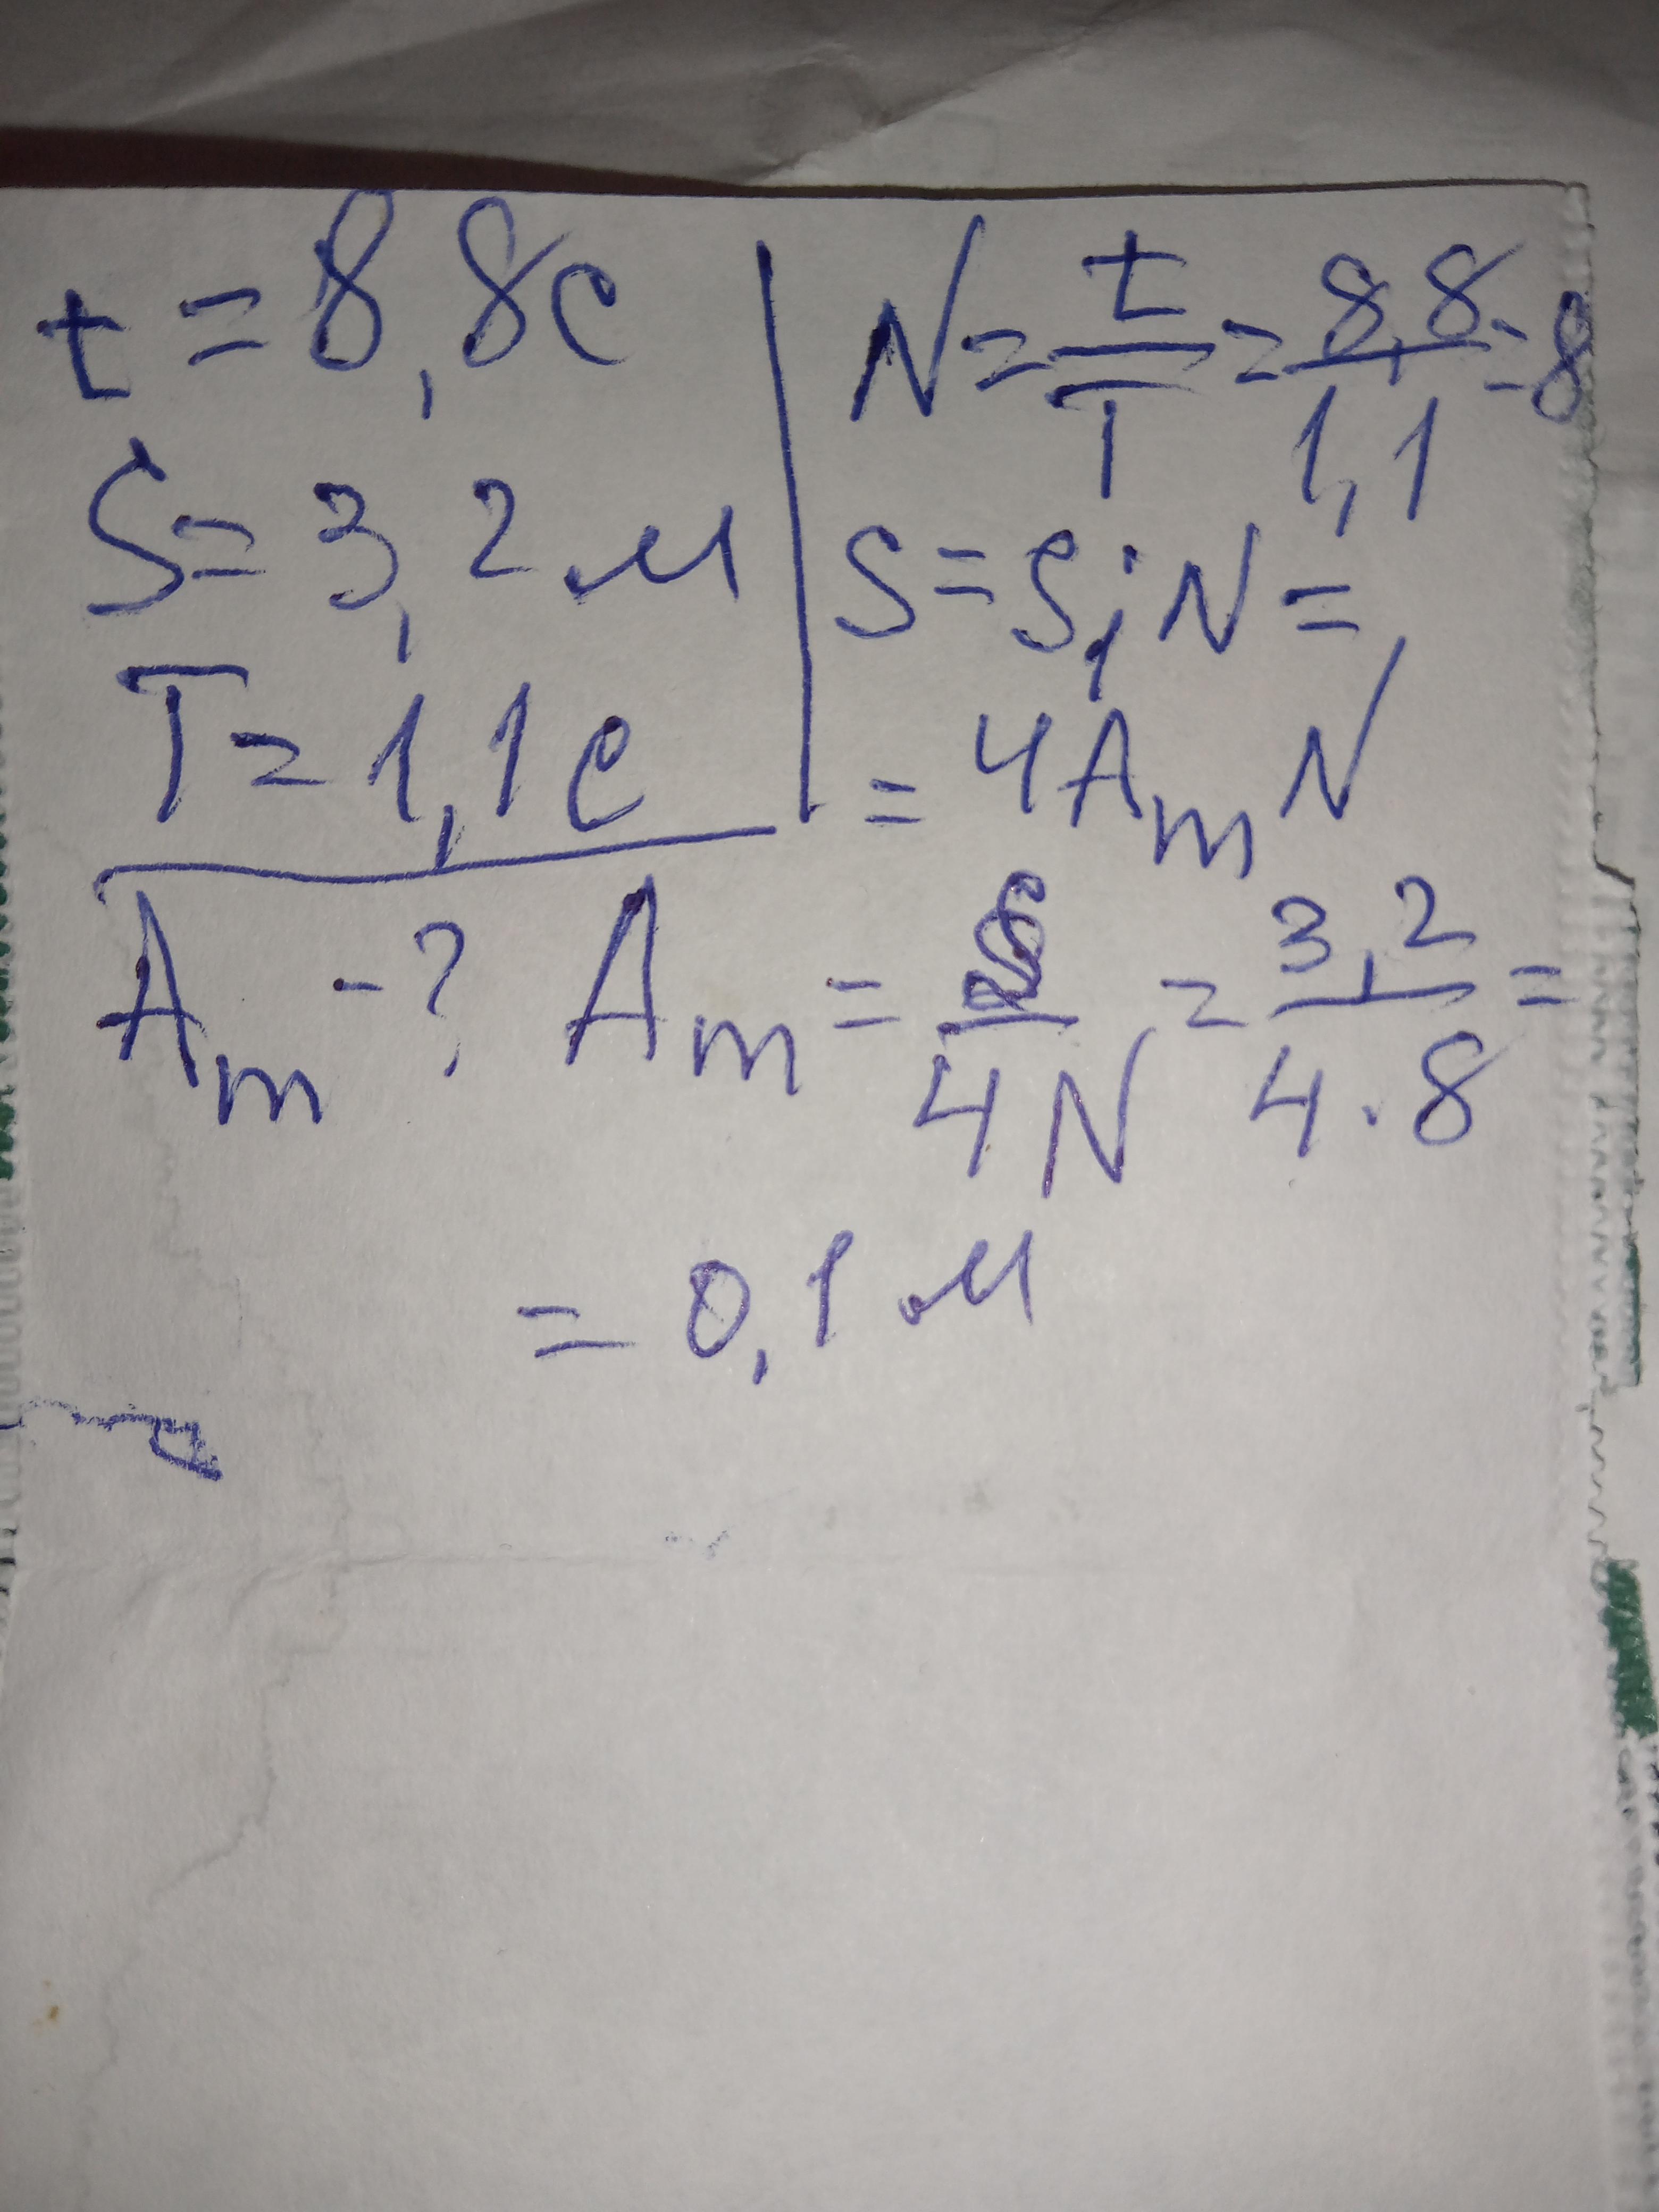 t = 8,8с
S = 3,2 м
T = 1,1 с
Aₘ - ?
N = t/T = 8,8/1,1 = 8
S = S₁·N =
= 4AₘN
Aₘ = S/4N = 3,2/4·8 =
= 0,1 м